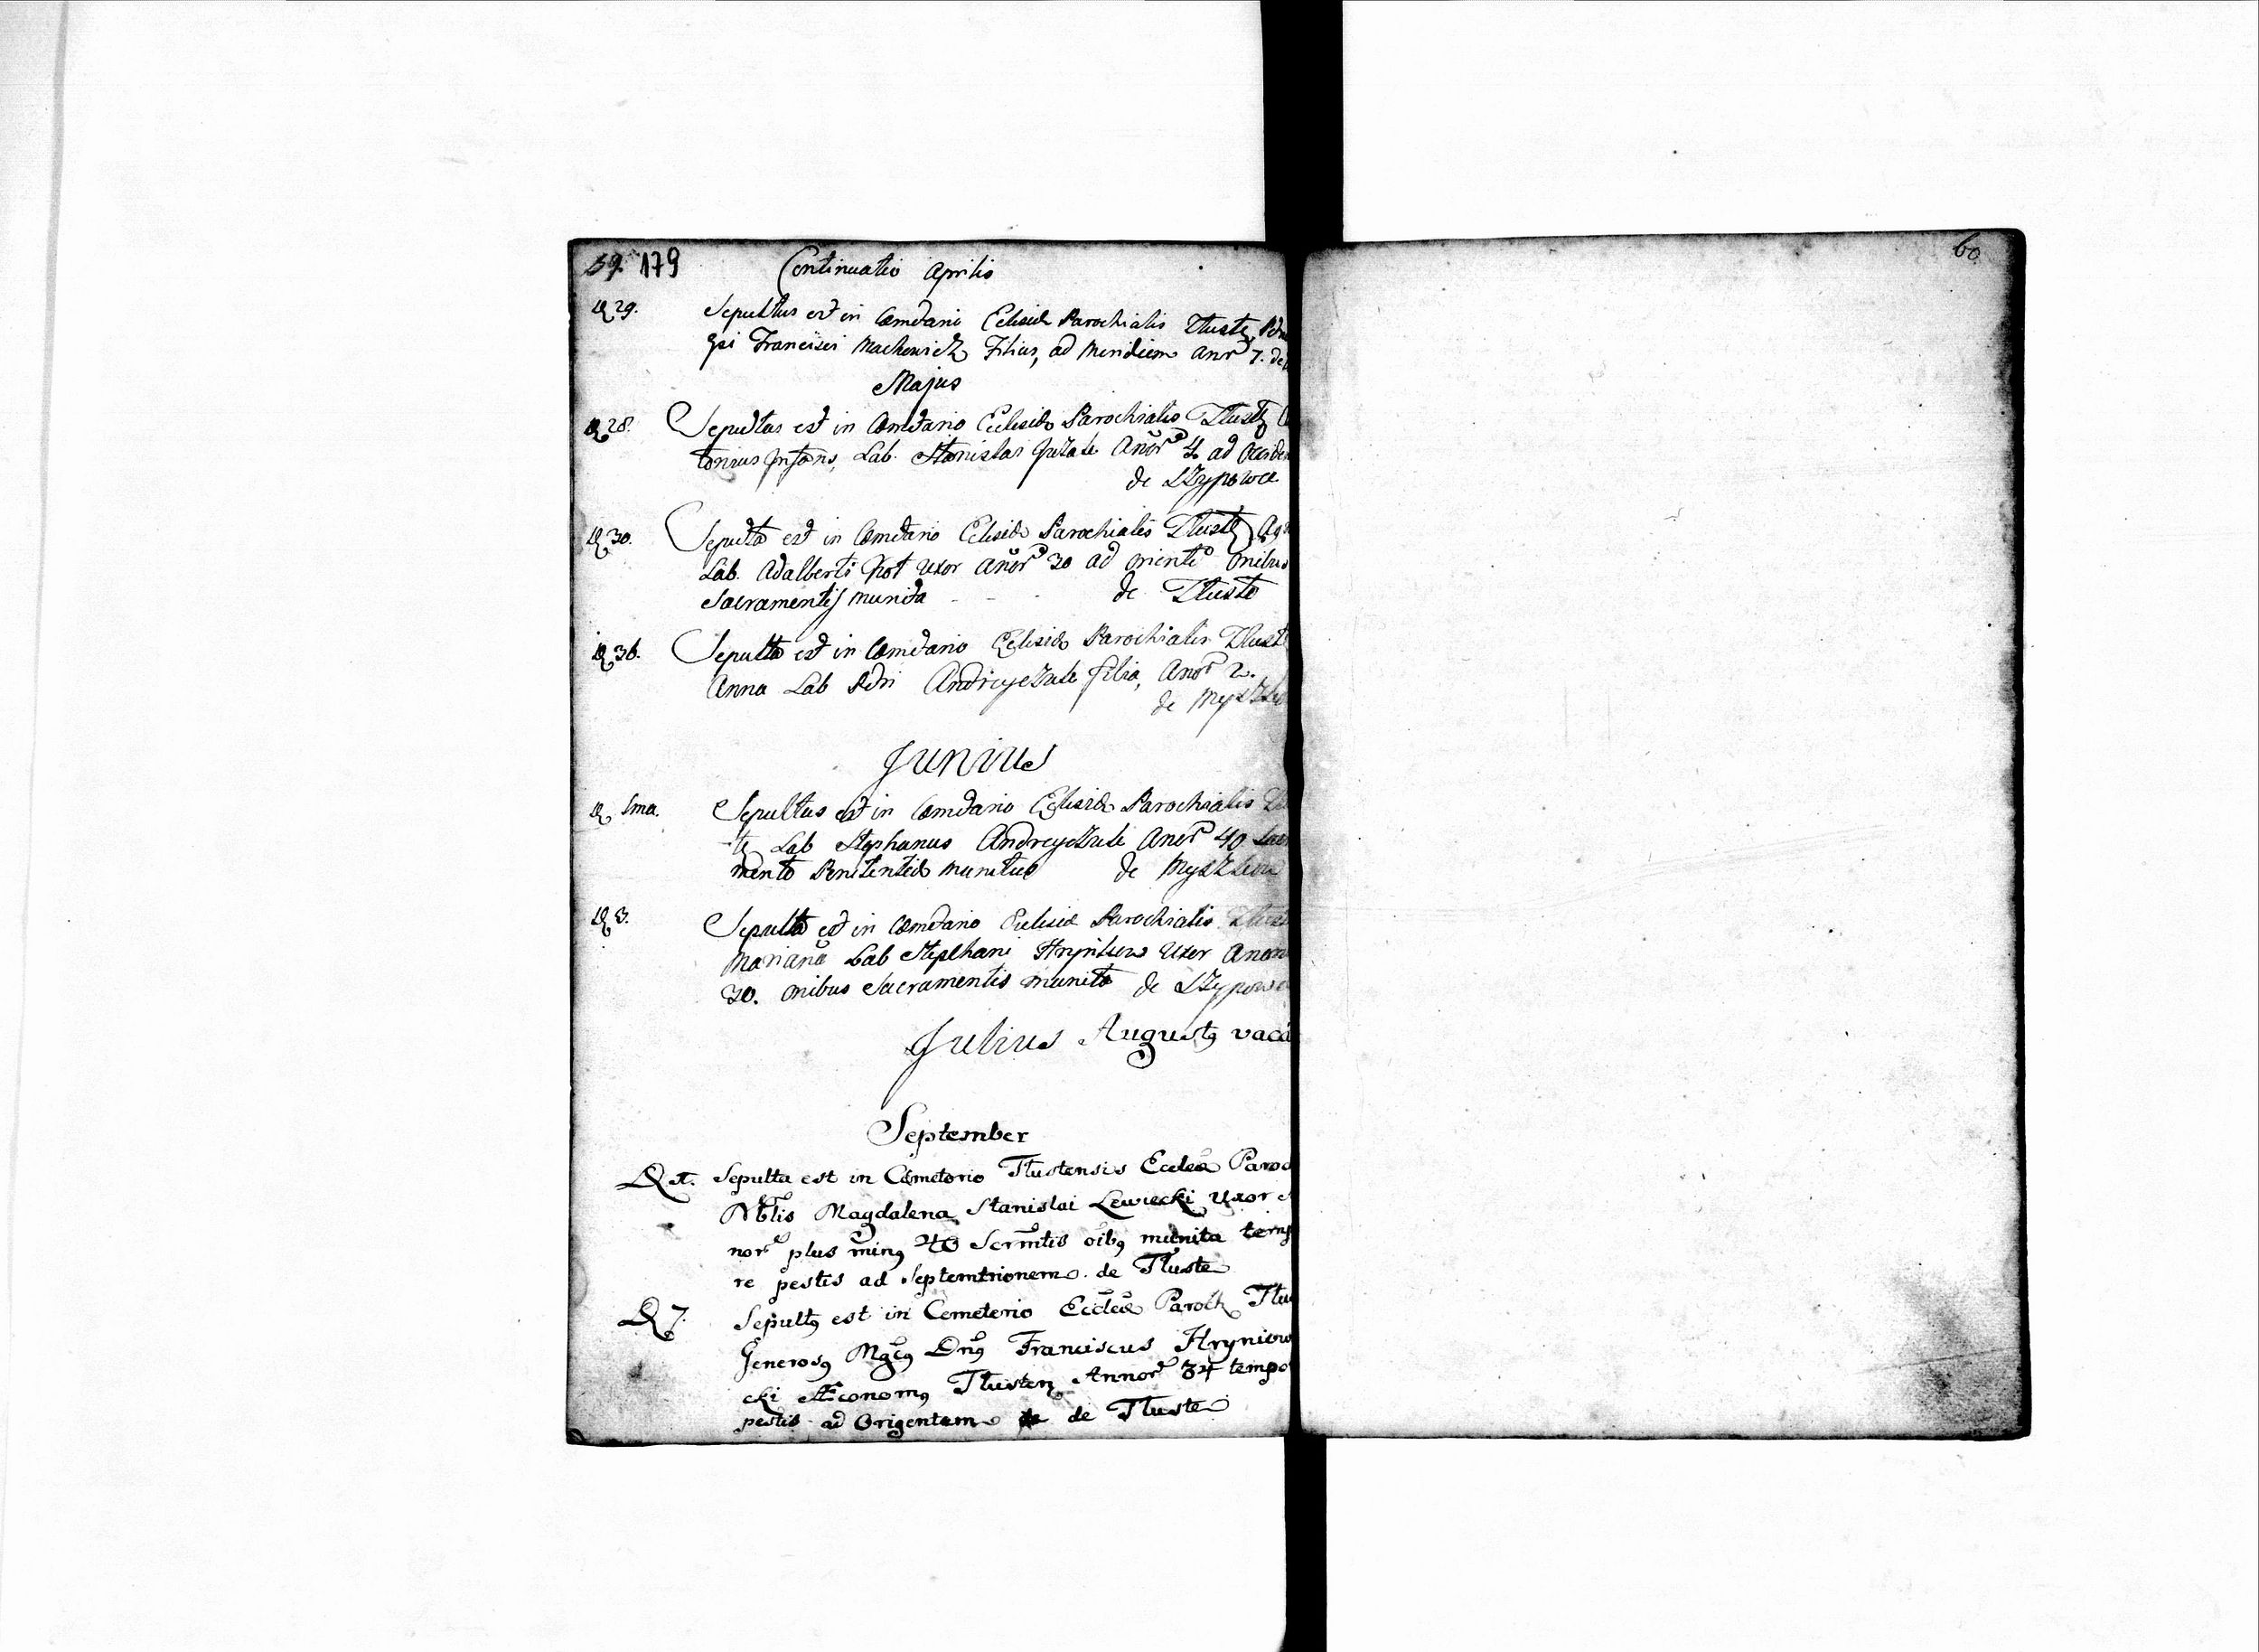 59. 179 Continuatio Aprilis
D 29. Sepultus est in Cometario Eclesiæ Parochialis Tluste
Francisci Machowicz Filius, ad Meridiem Anor 7. de
Majus
D 28. Sepultus est in Cometario Eclesiæ Parochialis Tluste
tonius Infans, Lab. Stanislai Anor 4 ad Occiden
de Szypowce
D 30. Sepulta est in Cometario Eclesiæ Parochialis Tluste Agn
Lab. Adalberti Kot Uxor Anor 30 ad Oriente Onibus
Sacramentis munita - - - de Tluste
D 30. Sepulta est in Cometario Eclesiæ Parochialis Tlust
Anna Lab Petri Andreyczuk filia, Anor 2.
de Myszko
Junius
D 1ma. Sepultus est in Cometario Eclesiæ Parochialis Tlu
te Lab Stephanus Andreyczuk Anor 40 Sacra
mento Penitentiæ munitus de Myszkow
D 3. Sepulta est in Cometario Eclesiæ Parochialis Tlust
Mariana Lab Stephani Hryńkow Uxor Anor
30. Onibus Sacramentis munita de Szypowce
Julius Augustꝰ vacá
September
D Sepulta est in Cæmeterio Tlustensis Ecclæ Paroc
Nblis Magdalena Stanislai Lewiecki Uxor
nor plus minꝰ 40 Scrmtis oibꝰ munita temp
re pestis ad Septemtrionem de Tluste
D 7. Sepultꝰ est in Cemeterio Ecclæ Paroch Tlu
Generosꝰ Mgcꝰ Dnꝰ Franciscus Hryniew
cki Æconomꝰ Tlusten Annor 34 tempo
pestis ad Origentem de Tluste
60